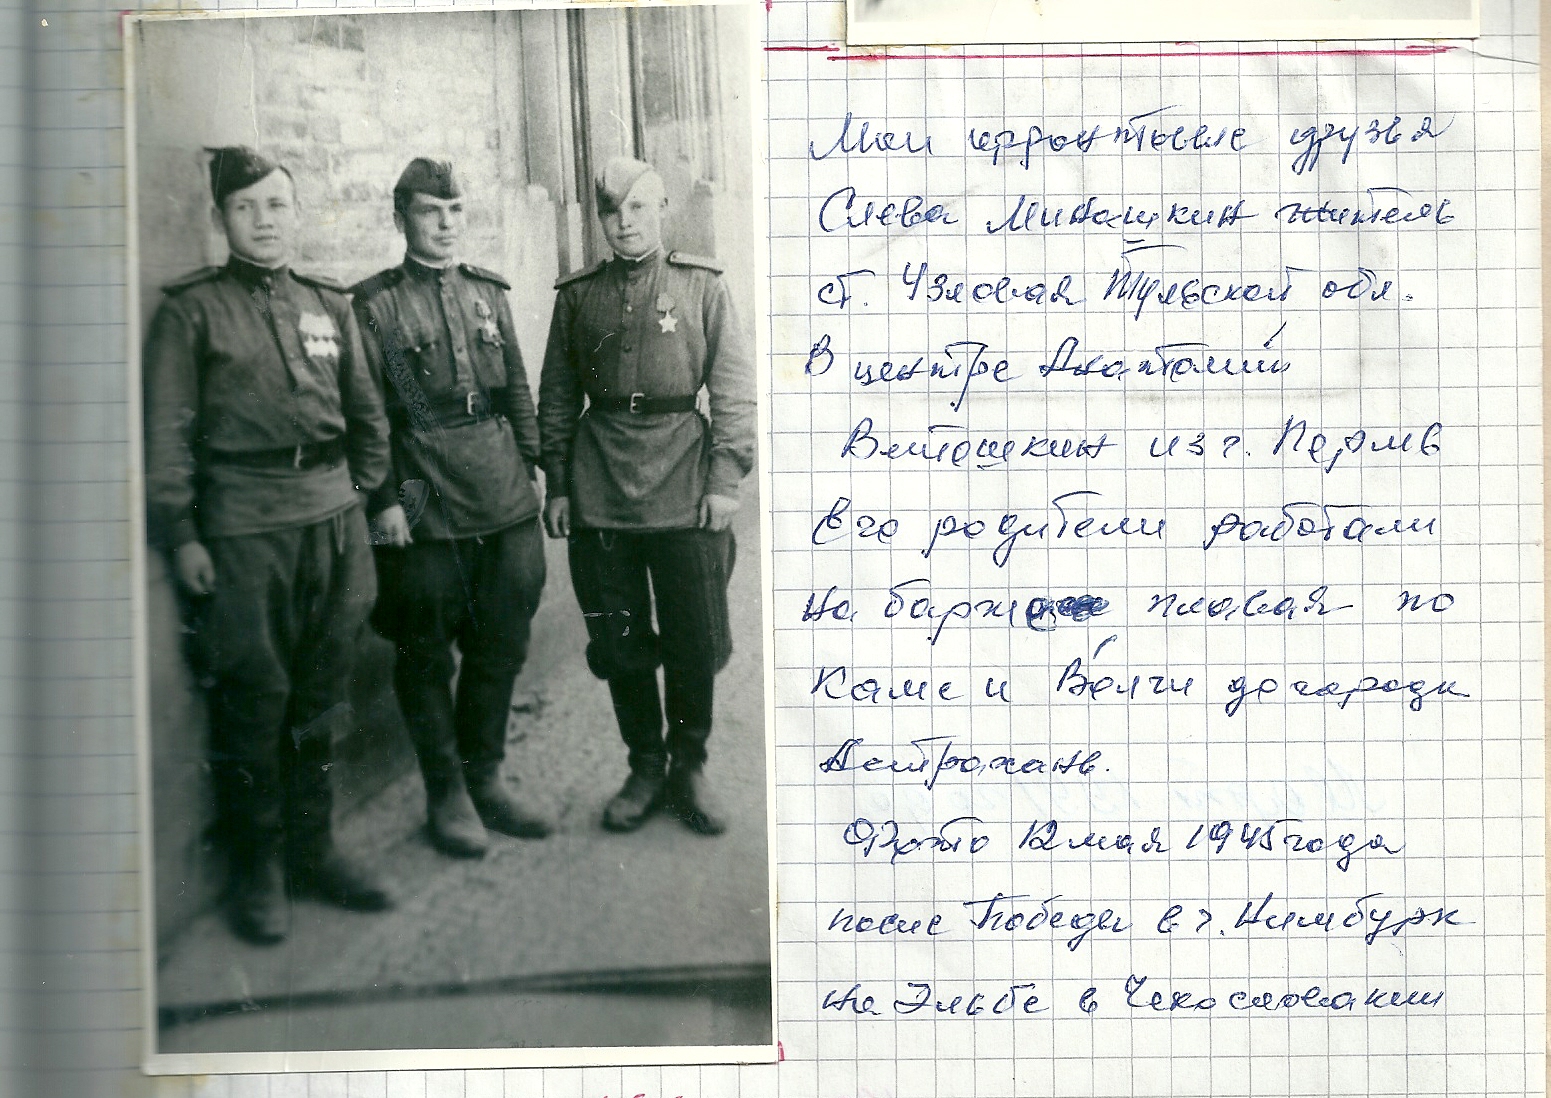 Мои фронтовые друзья
Слева Минашкин житель
ст. Узловая Тульской обл.
В центре Анатолий
Витошкин из г. Пермь
Его родители работали
на барже плавая по
Каме и Волги до города
Астрахань.
Фото 12 мая 1945 года
после Победы в г. Нимбурк
на Эльбе в Чехословакии